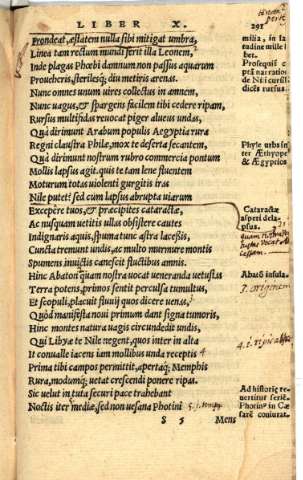 LIBER X.
291
Prondeat, æstatem nulla sibi mitigat umbra,
Linea tam rectum mundi ferit illa Leonem,
Inde plagas Phœbi damnum non passus aquarum
Proueheris, sterilesq́; diu metiris arenas.
Nunc omnes unum uires collectus in amnem,
Nunc uagus, & spargens facilem tibi cedere ripam,
Rursus multifidas reuocat piger alueus undas,
Quà dirimunt Arabum populis Aegyptia rura
Regni claustra Philæ, mox te deserta secantem,
Quà dirimunt nostrum rubro commercia pontum
Mollis lapsus agit. quis te tam lene fluentem
Moturum totas uiolenti gurgitis iras
Nile putet? sed cum lapsus abrupta uiarum
Excepere tuos, & præcipites cataractæ,
Ac nusquam uetitis ullas obsistere cautes
Indignaris aquis, spuma tunc astra lacessis,
Cuncta tremunt undis, ac multo murmure montis
Spumeus inuictis canescit fluctibus amnis.
Hinc Abaton quam nostra uocat ueneranda uetustas
Terra potens, primos sentit perculsa tumultus,
Et scopuli, placuit fluuij quos dicere uenas,
Quòd manifesta noui primum dant signa tumoris,
Hinc montes natura uagis circundedit undis,
Qui Libyæ te Nile negent, quos inter in alta
It conualle iacens iam mollibus unda receptis
Prima tibi campos permittit, apertaq́; Memphis
Rura, modumq́; uetat crescendi ponere ripas.
Sic uelut in tuta securi pace trahebant
Noctis iter mediæ, sed non uesana Photini
S 5
Mens
milia, in la
titudine mille
Prosequitur
pes narratio
de Nili cursu
dicēs rursus.
Phyle urbs in
ter Æthyopē
& Ægyptios
Cataractæ
asperi dela
psus.
Abatō insula.
Ad historiæ re
uertitur seriē.
Photinꝰ in Cæ
sarē coniurat.